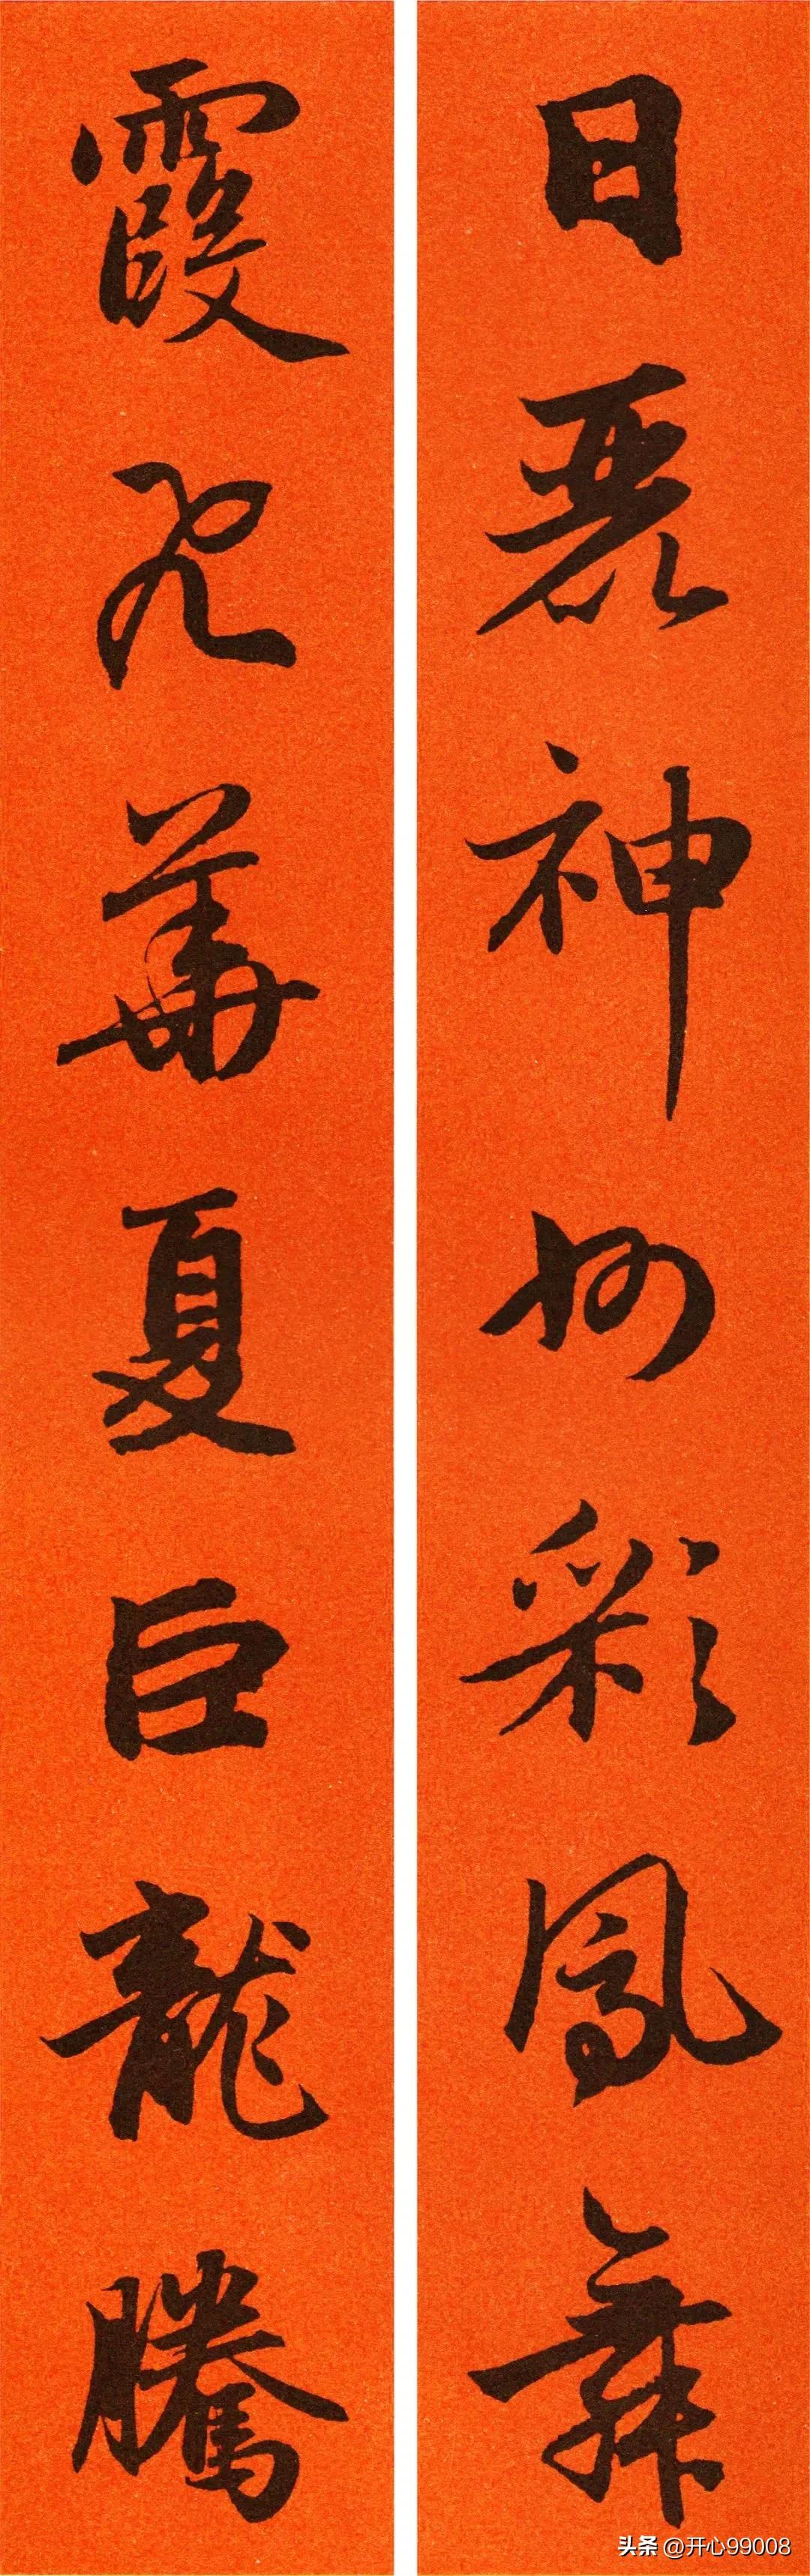 日麗神州彩鳳舞
霞飛華夏巨龍騰
头条 @开心99008